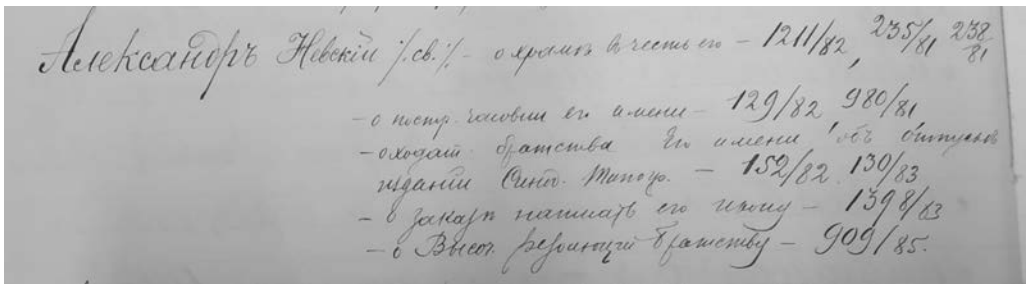 Александръ Невскій /.св./. – о храмѣ въ честь его – 1211/82, 235/81 238/81
– о постр. часовни его имени – 129/82, 980/81,
– о ходат. братства Его имени объ отпускѣ
изданій Синод. Типогр. – 152/82 130/83
– о заказѣ написать его икону – 1398/83
– о Высоч. резолюціи братству – 909/85.